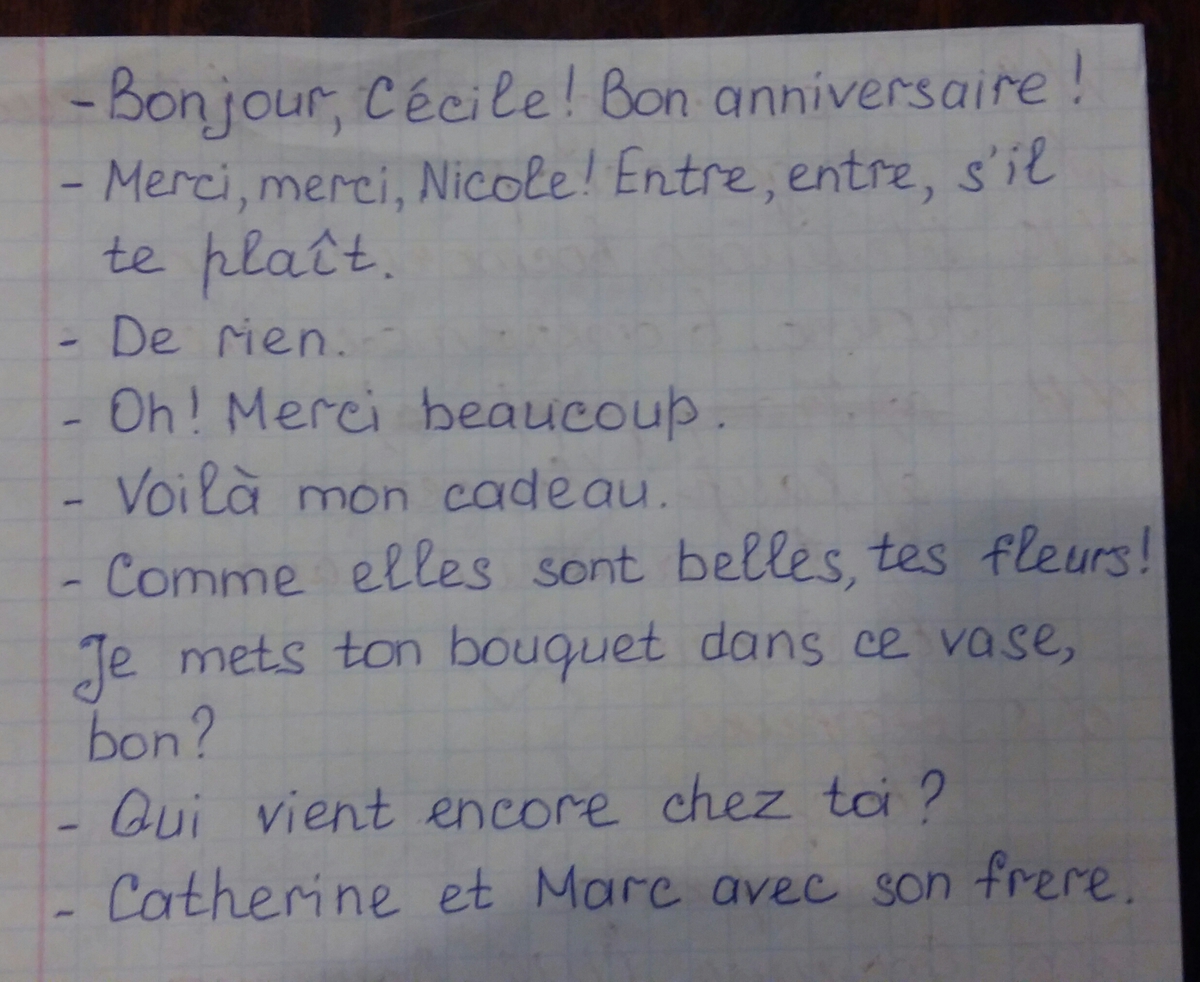 - Bonjour, Cécile! Bon anniversaire!
- Merci, merci, Nicole! Entre, entre, s'il
te plaît.
- De rien.
- Oh! Merci beaucoup.
- Voilà mon cadeau.
- Comme elles sont belles, tes fleurs!
Je mets ton bouquet dans ce vase,
bon?
- Qui vient encore chez toi?
- Catherine et Marc avec son frere.